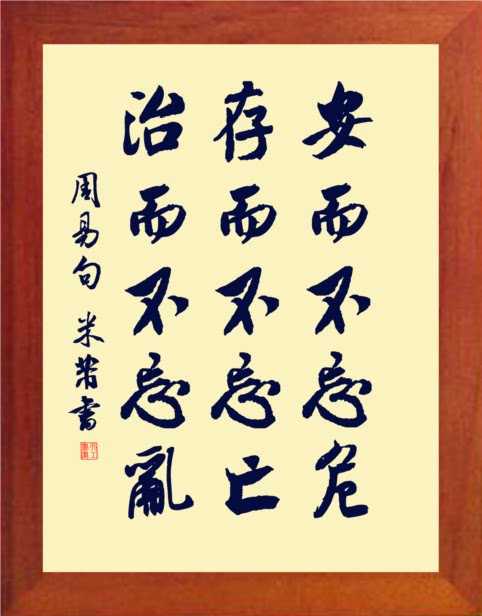 安而不忘危
存而不忘亡
治而不忘亂
周易句 米芾書